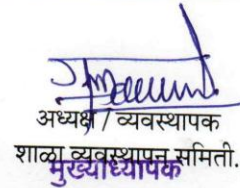 अध्यक्ष / व्यवस्थापक
शाळा व्यवस्थापन समिती.
मुख्याध्यापक